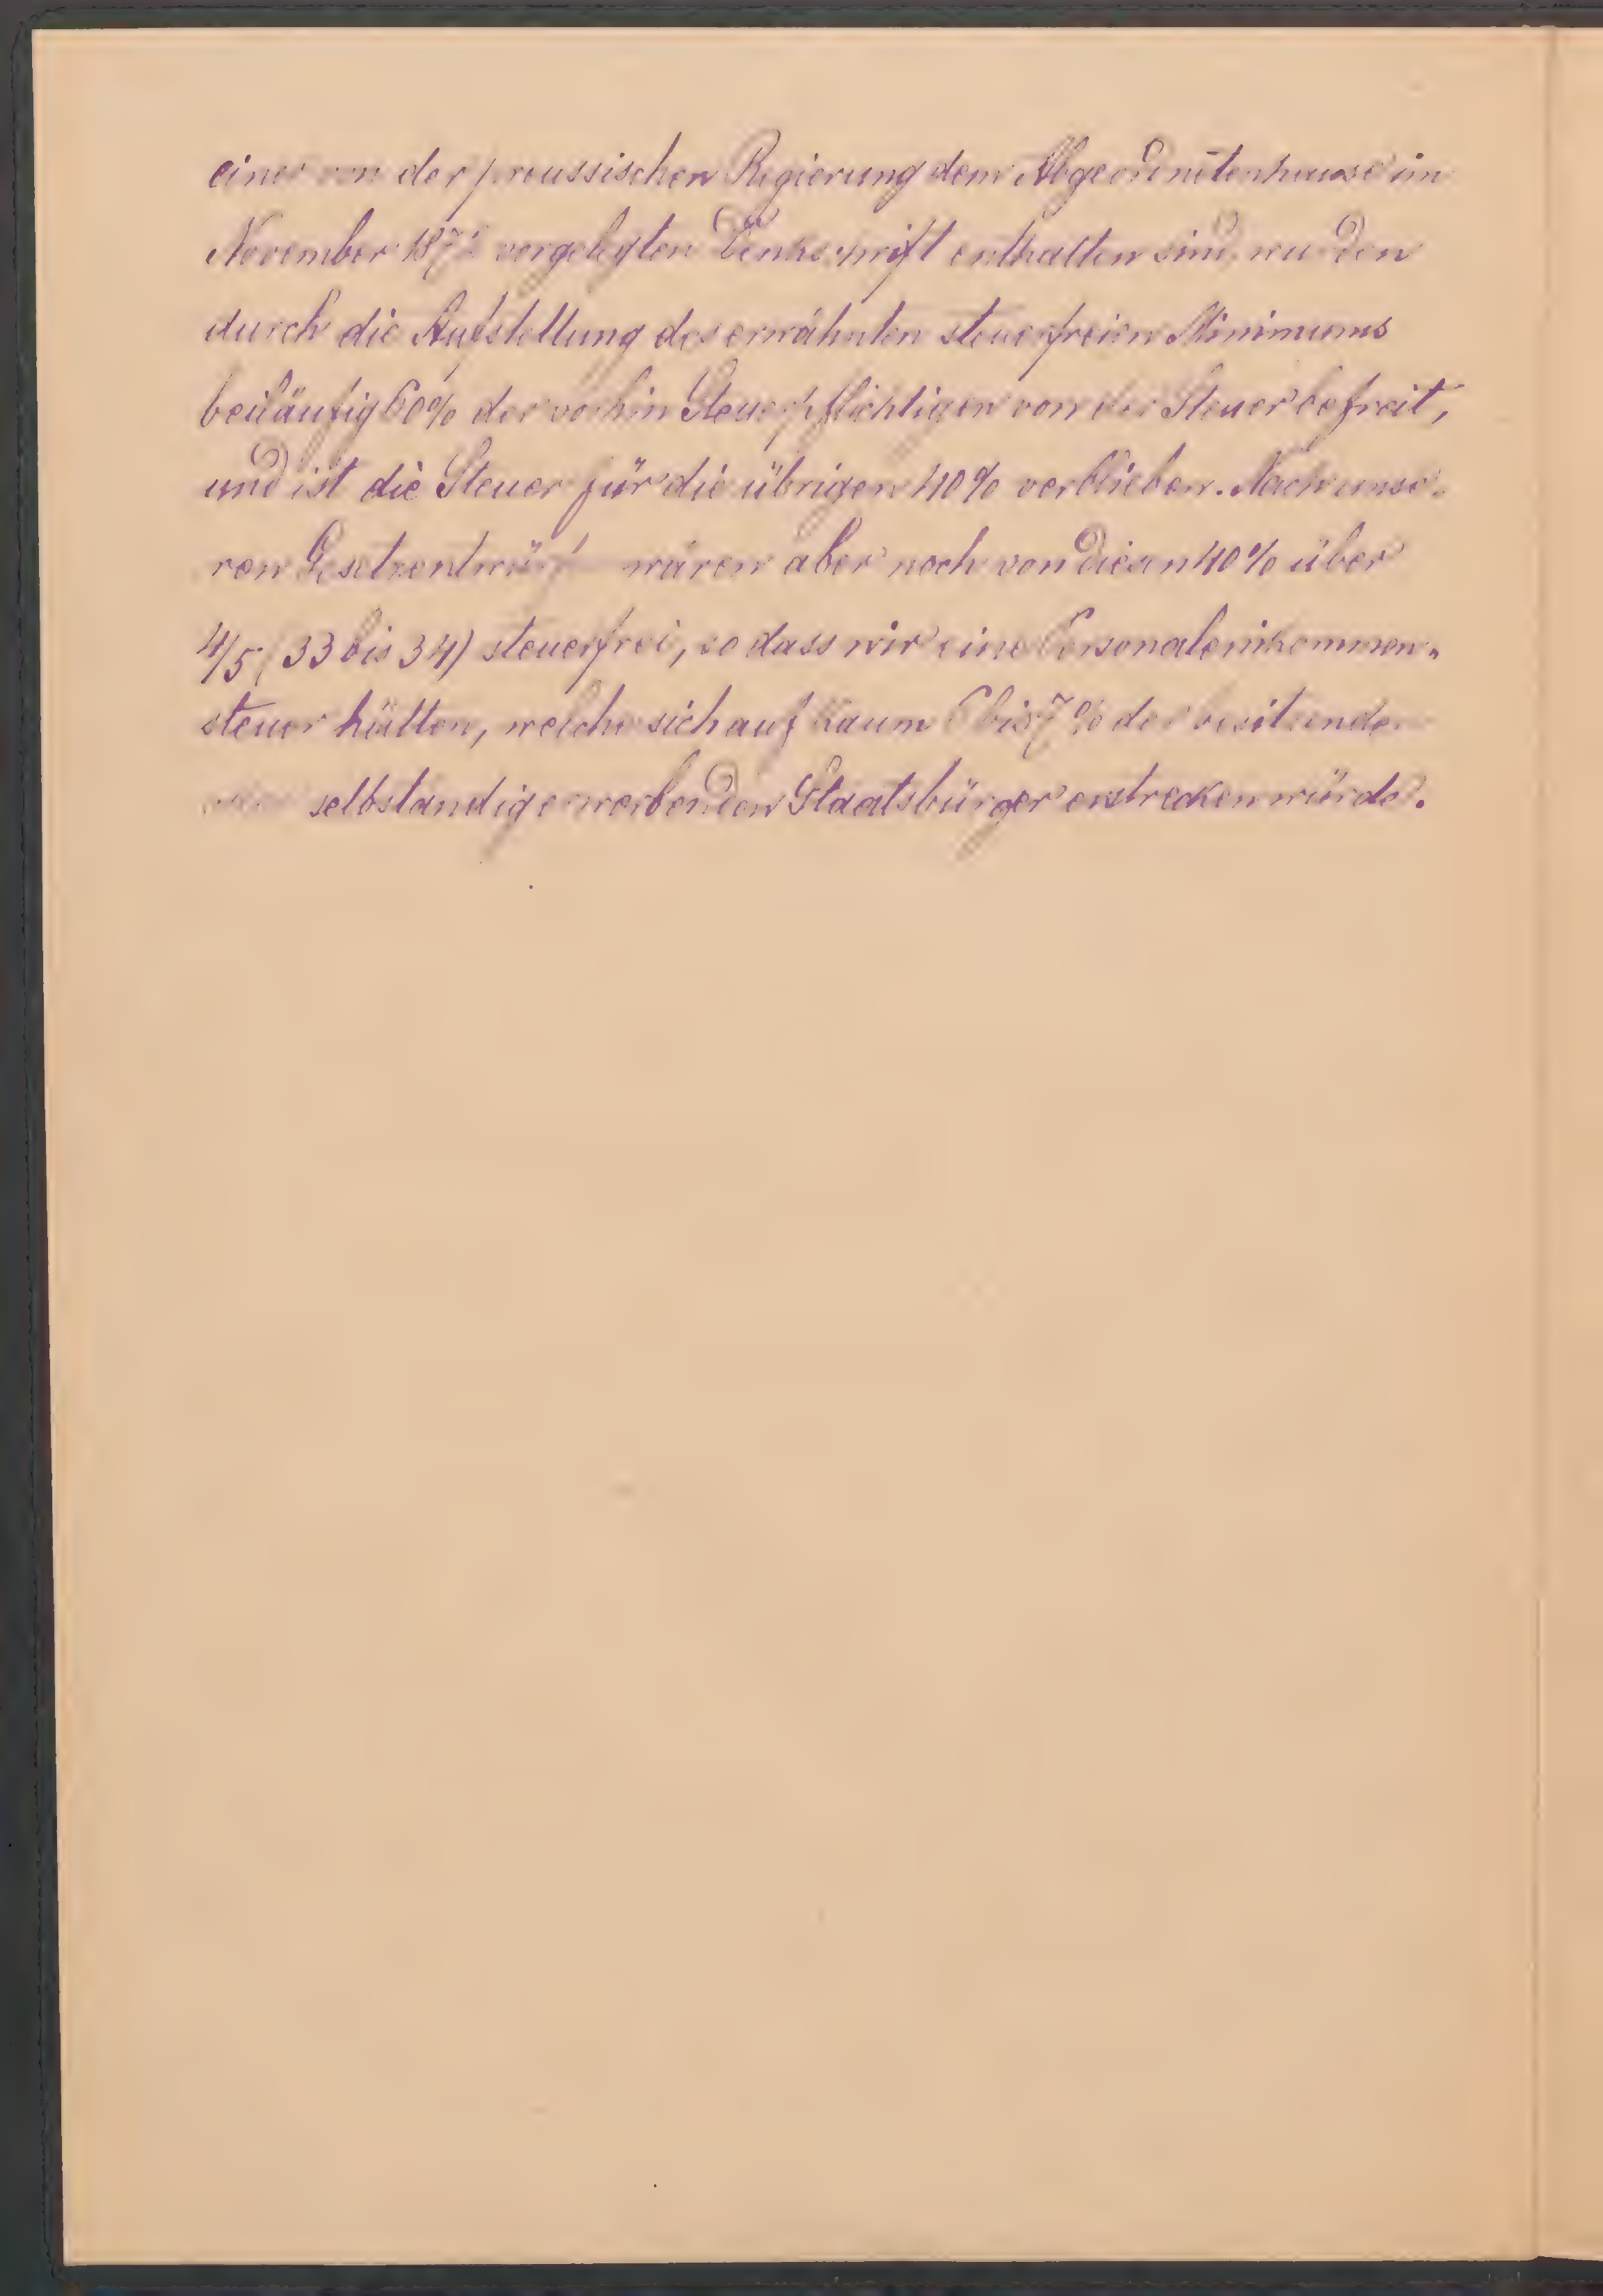 einer von der preussischen Regierung dem Abgeordnetenhause im
November vorgelegten Denkschrift enthalten sind, wurden
durch die Aufstellung des erwähnten steuerfreien Minimums
beiläufig 60% der vorhin Steuerpflichtigen von der Steuer befreit,
und ist die Steuer für die übrigen 40% verblieben. Nach unse-
ren wären aber noch von diesen 40% über
4/5 (33 bis 34) steuerfrei, so dass wir eine Personaleinkommen-
steuer hätten, welche sich auf kaum 6 bis 7% der besitzenden
oder selbständig erwerbenden Staatsbürger erstrecken würde.